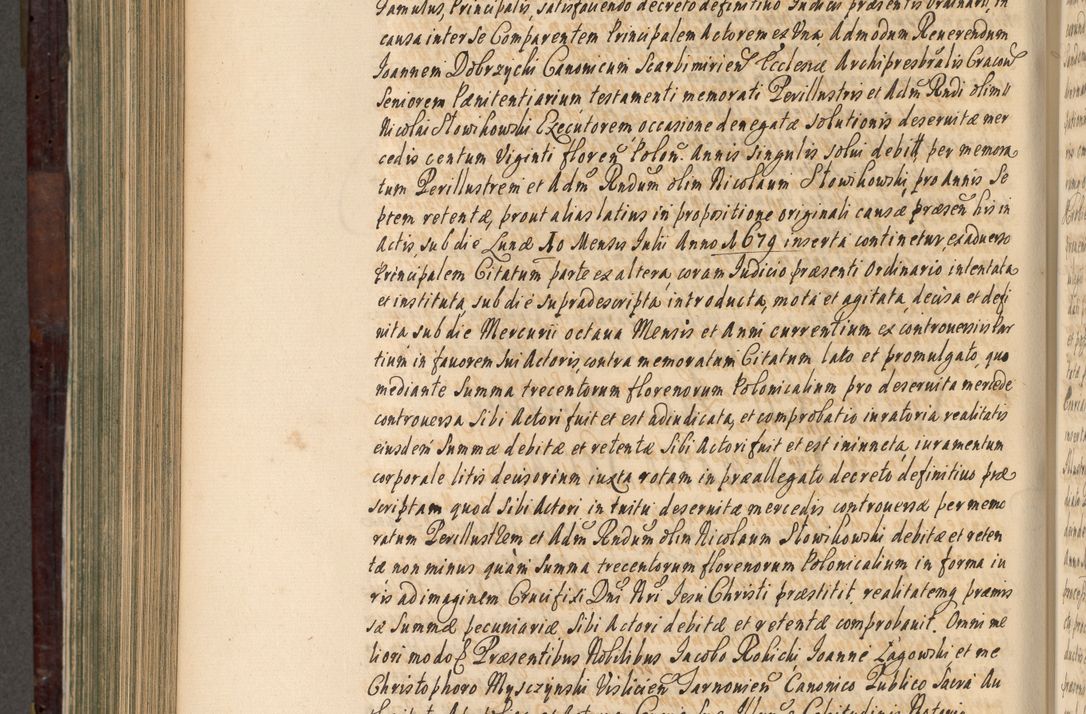 Famulus, Principalis, satisfaciendo decreto definitiuo Iudicii præsentis Ordinarii, in
causa inter Se Comparentem Principalem Actorem ex Vna, Admodum Reuerendum
Ioannem Dobrzychi Canonicum Scarbimirien̄ Ecclesiæ Archipresbralis Cracou̅
Seniorem Pænitentiarium testamenti memorati Perillustris et Adm̄ Rndi olim
Nicolai Stowikowski Executorem occasione denegatæ solutionis deseruitæ mer
cedis centum Viginti floren̄ Polon̄. Annis singulis solui debitæ per memora
tum Perillustrem et Adm̄ Rndum olim Nicolaum Stowikowski, pro Annis Se
ptem retentæ, prout alias latius in propositione originali causæ præsen̄ his in
Actis, sub die Lunæ 10 Mensis Iulii Anno 1679 inserta continetur, ex aduerso
Principalem Citatum parte ex altera, coram Iudicio præsenti Ordinario, intentata
et instituta, sub die supradescripta, introducta, mota et agitata, decisa et defi
nita sub die Mercurii octaua Mensis et Anni currentium ex controuersiis Par
tium in fauorem sui Actoris, contra memoratum Citatum lato et promulgato, quo
mediante Summa trecentorum florenorum Polonicalium pro deseruita mercede
controuersa Sibi Actori fuit et est adiudicata, et comprobatio iuratoria realitatis
eiusdem̄ Summæ debitæ et retentæ Sibi Actori fuit et est iniuncta, iuramentum
corporale litis decisorium iuxta rotam in præallegato decreto definitiuo præ
scriptam quod Sibi Actori intuitu deseruitæ mercedis controuersæ per memo
ratum Perillustrem et Adm̄ Rndum olim Nicolaum Stowikowski debitæ et reten
tæ non minus quàm Summa trecentorum florenorum Polonicalium in forma iu
ris ad imaginem Crucifixi Dn̄i Nr̄i Iesu Christi præstitit, realitatemq præmis
sæ Summæ pecuniariæ Sibi Actori debitæ et retentæ comprobauit. Omni me
liori modo Præsentibus Nobilibus Iacobo Rokicki Ioanne Zagowski et me
Christophoro Mysczynski Vislicien̄ Tarnouien̄ Canonico Publico Sacra Au